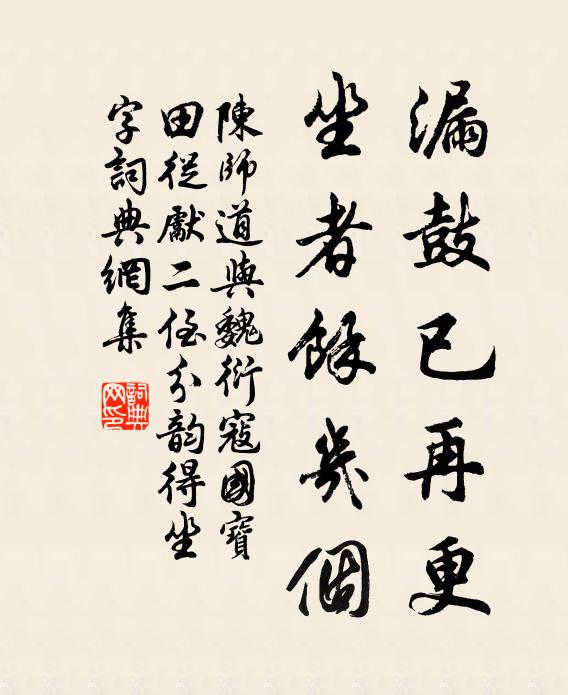 漏鼓已再更
坐者餘幾個
陳師道與魏衍寇國寶
田從獻二侄分韵得坐
字詞典網集
詞典
网印